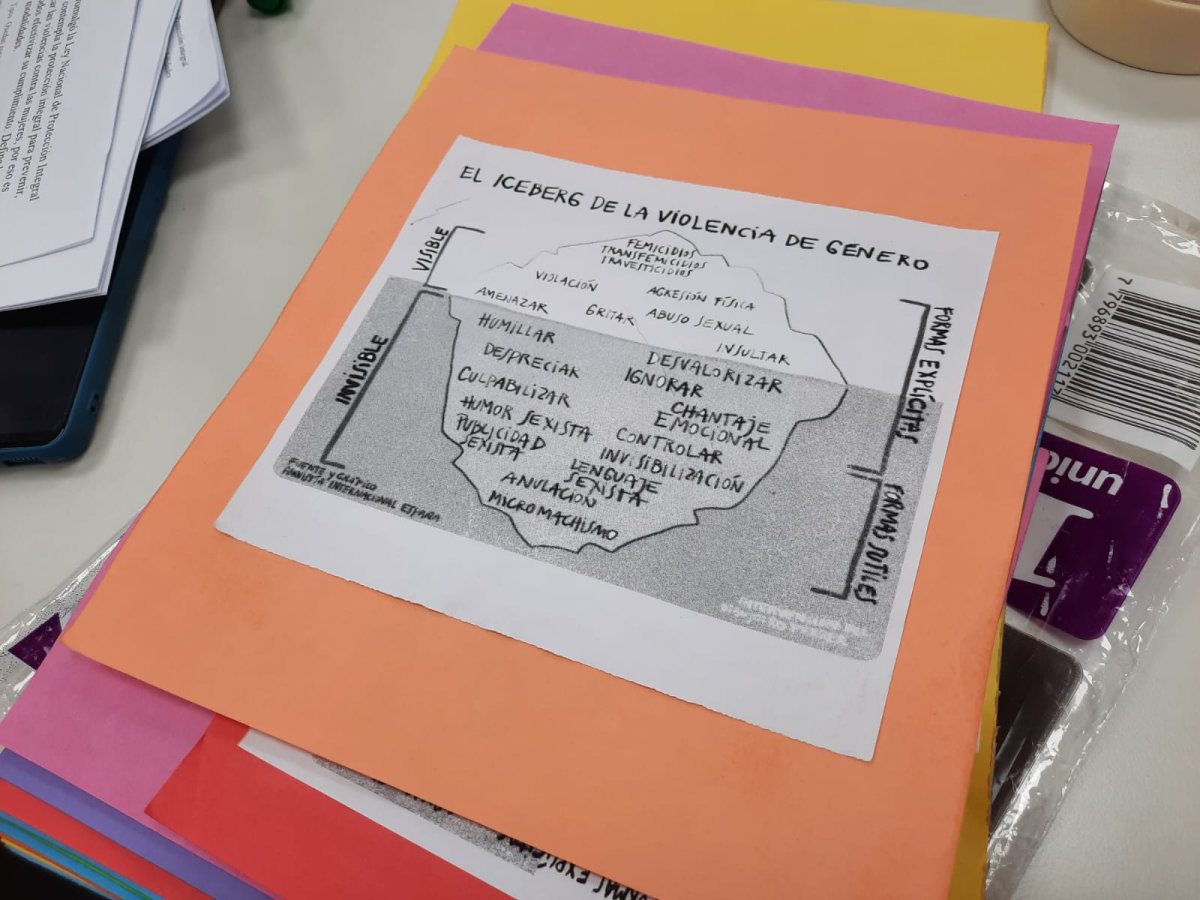 EL ICEBERG DE LA VIOLENCIA DE GÉNERO
VISIBLE
FEMICIDIOS
TRANSFEMICIDIOS
TRAVESTICIDIOS
VIOLACIÓN
AGRESIÓN FÍSICA
AMENAZAR
GRITAR
ABUSO SEXUAL
INSULTAR
INVISIBLE
HUMILLAR
DESVALORIZAR
DESPRECIAR
IGNORAR
CULPABILIZAR
CHANTAJE
EMOCIONAL
HUMOR SEXISTA
CONTROLAR
PUBLICIDAD
SEXISTA
INVISIBILIZACIÓN
LENGUAJE
SEXISTA
ANULACIÓN
MICROMACHISMO
FORMAS EXPLÍCITAS
FORMAS SUTILES
FUENTE Y GRÁFICO
AMNISTÍA INTERNACIONAL ESPAÑA
Ley Nacional de Protección Integral
contempla la protección integral para prevenir,
las violencias contra las mujeres, por eso es
efectivizar su cumplimiento.
modalidades.
7 796893 00211
FORMAS EXPLÍCITAS